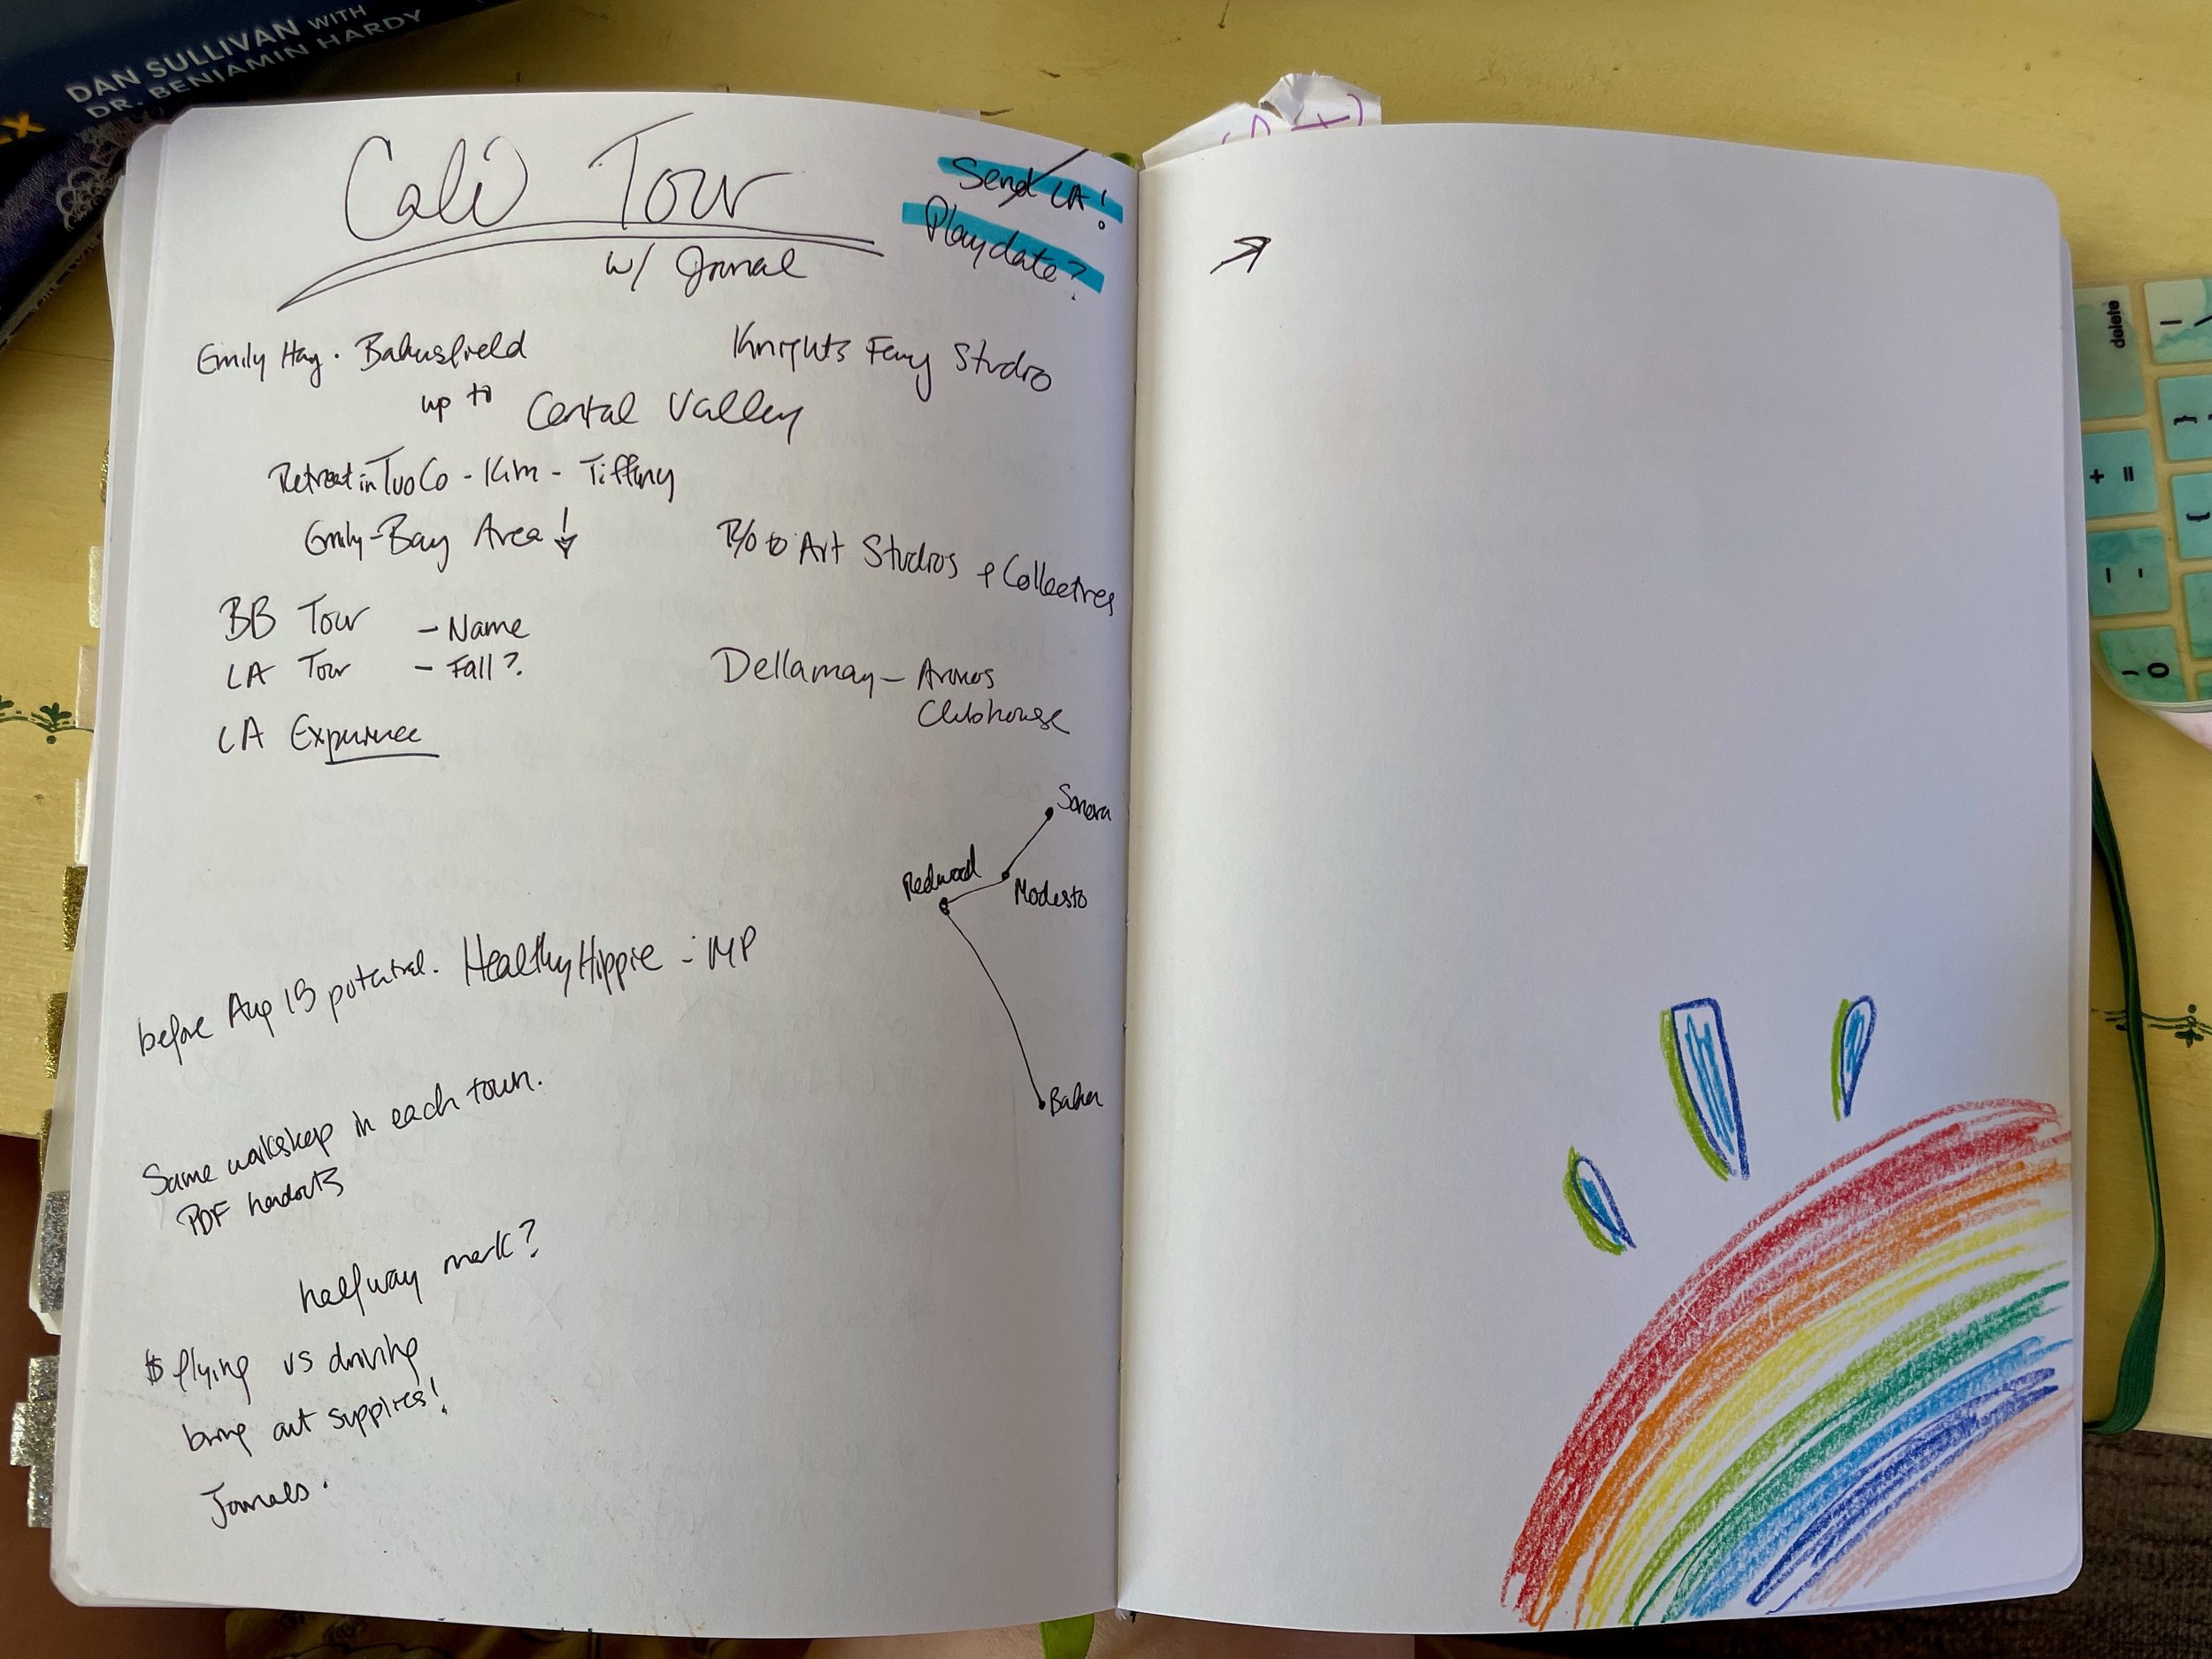 DAN SULLIVAN WITH
DR. BENJAMIN HARDY
Cali Tour
w/ Jrnal
Send LA!
Playdate?
Emily Hay. Bakersfield
up to Central Valley
Knights Ferry Studio
Retreat in TuoCo - Kim - Tiffany
Emily-Bay Area
R/O to Art Studios + Collectives
BB Tour - Name
LA Tour - Fall?
LA Experience
Dellamay - Aromas
Clubhouse
Sonora
Redwood
Modesto
Baker
before Aug 15 potential. Healthy Hippie - MP
Same workshop in each town.
PDF handouts
halfway mark?
$ flying vs driving
bring art supplies!
Journals.
delete
+ =
) 0